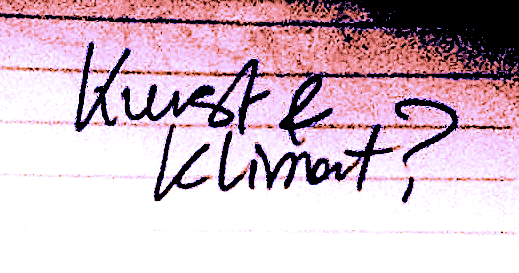 Kunst &
Klimat?